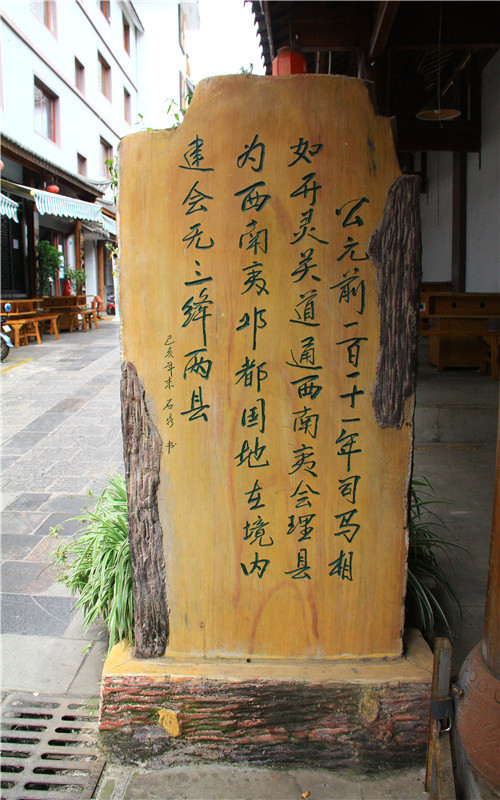 公元前一百一十一年司马相
如开灵关道通西南夷会理县
为西南夷邛都国地在境内
建会无三绛两县
己亥年末石彬书